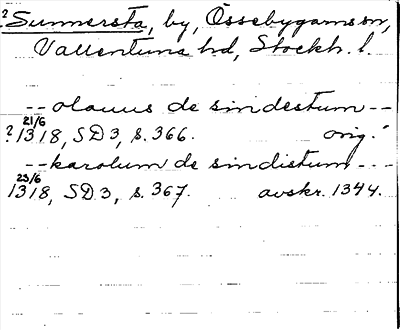 ? Sunnersta, by, Össebygarns sn,
Vallentuna hd, Stockh. l.
-- olauus de sindestum --
21/6
? 1318, SD 3, s. 366. orig.
-- karolum de sindistum ---
23/6
1318, SD 3, s. 367. avskr. 1344.